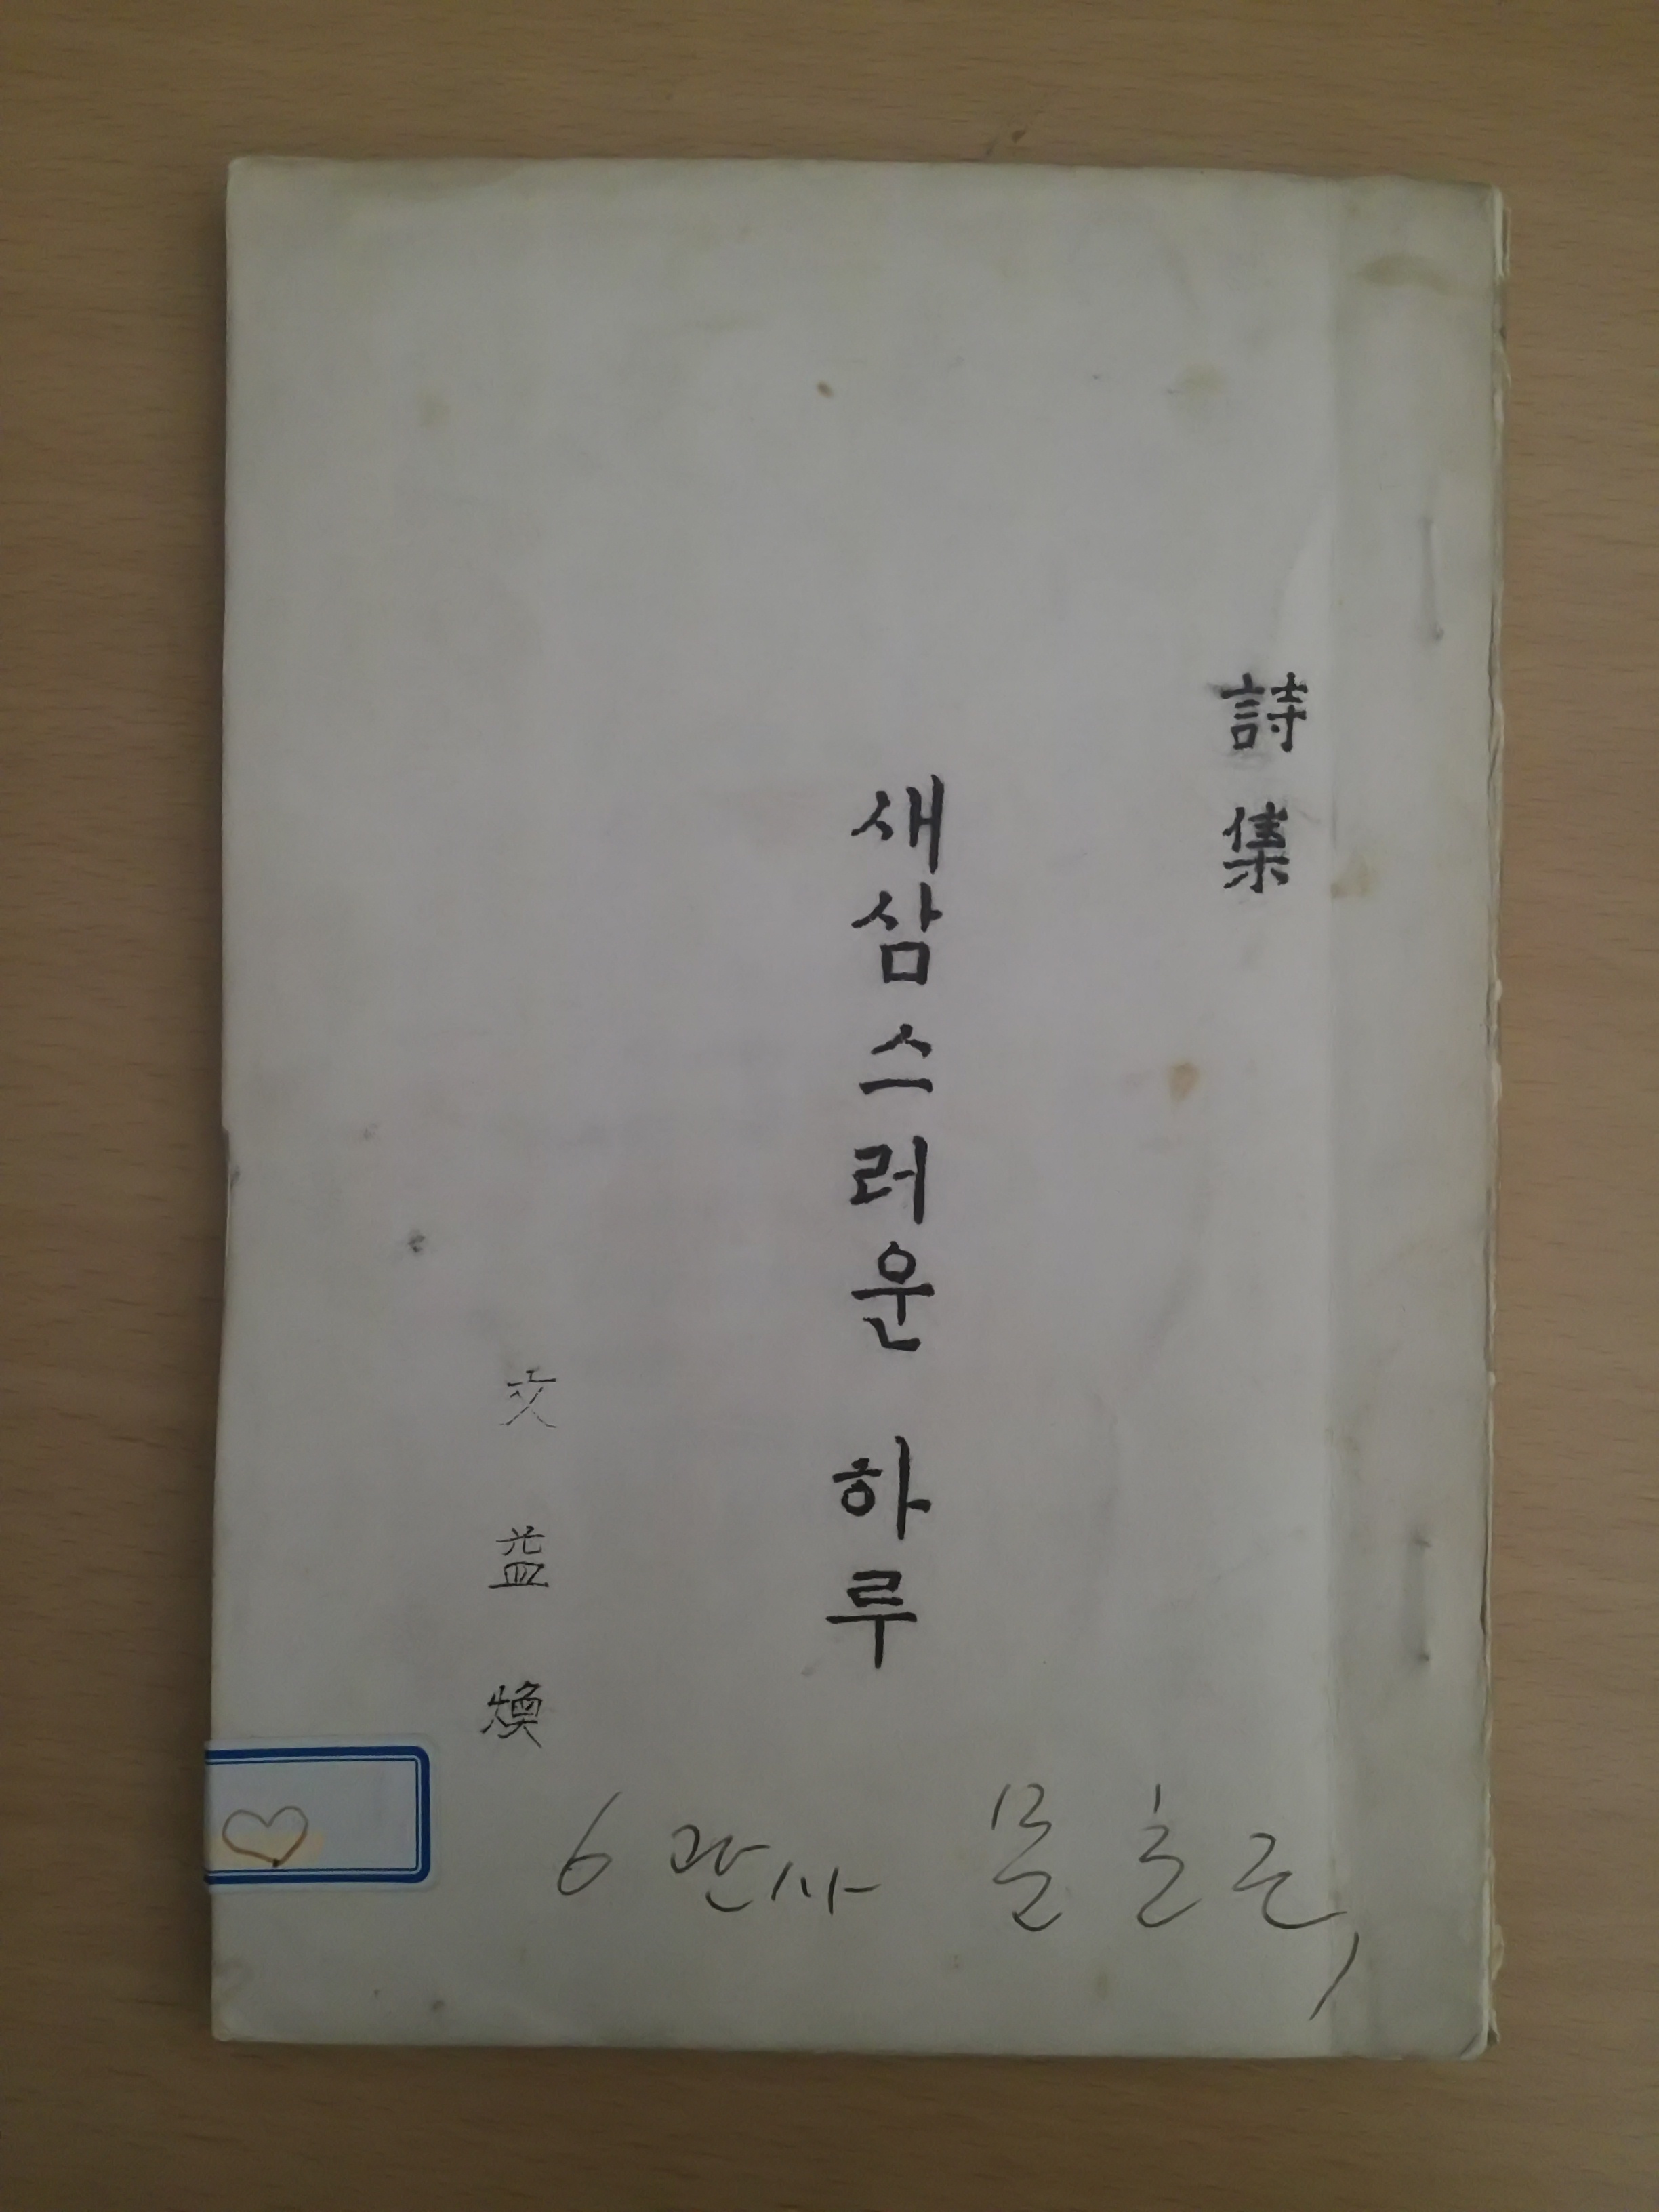 詩集
새삼스러운 하루
文益煥
6 관사 몰